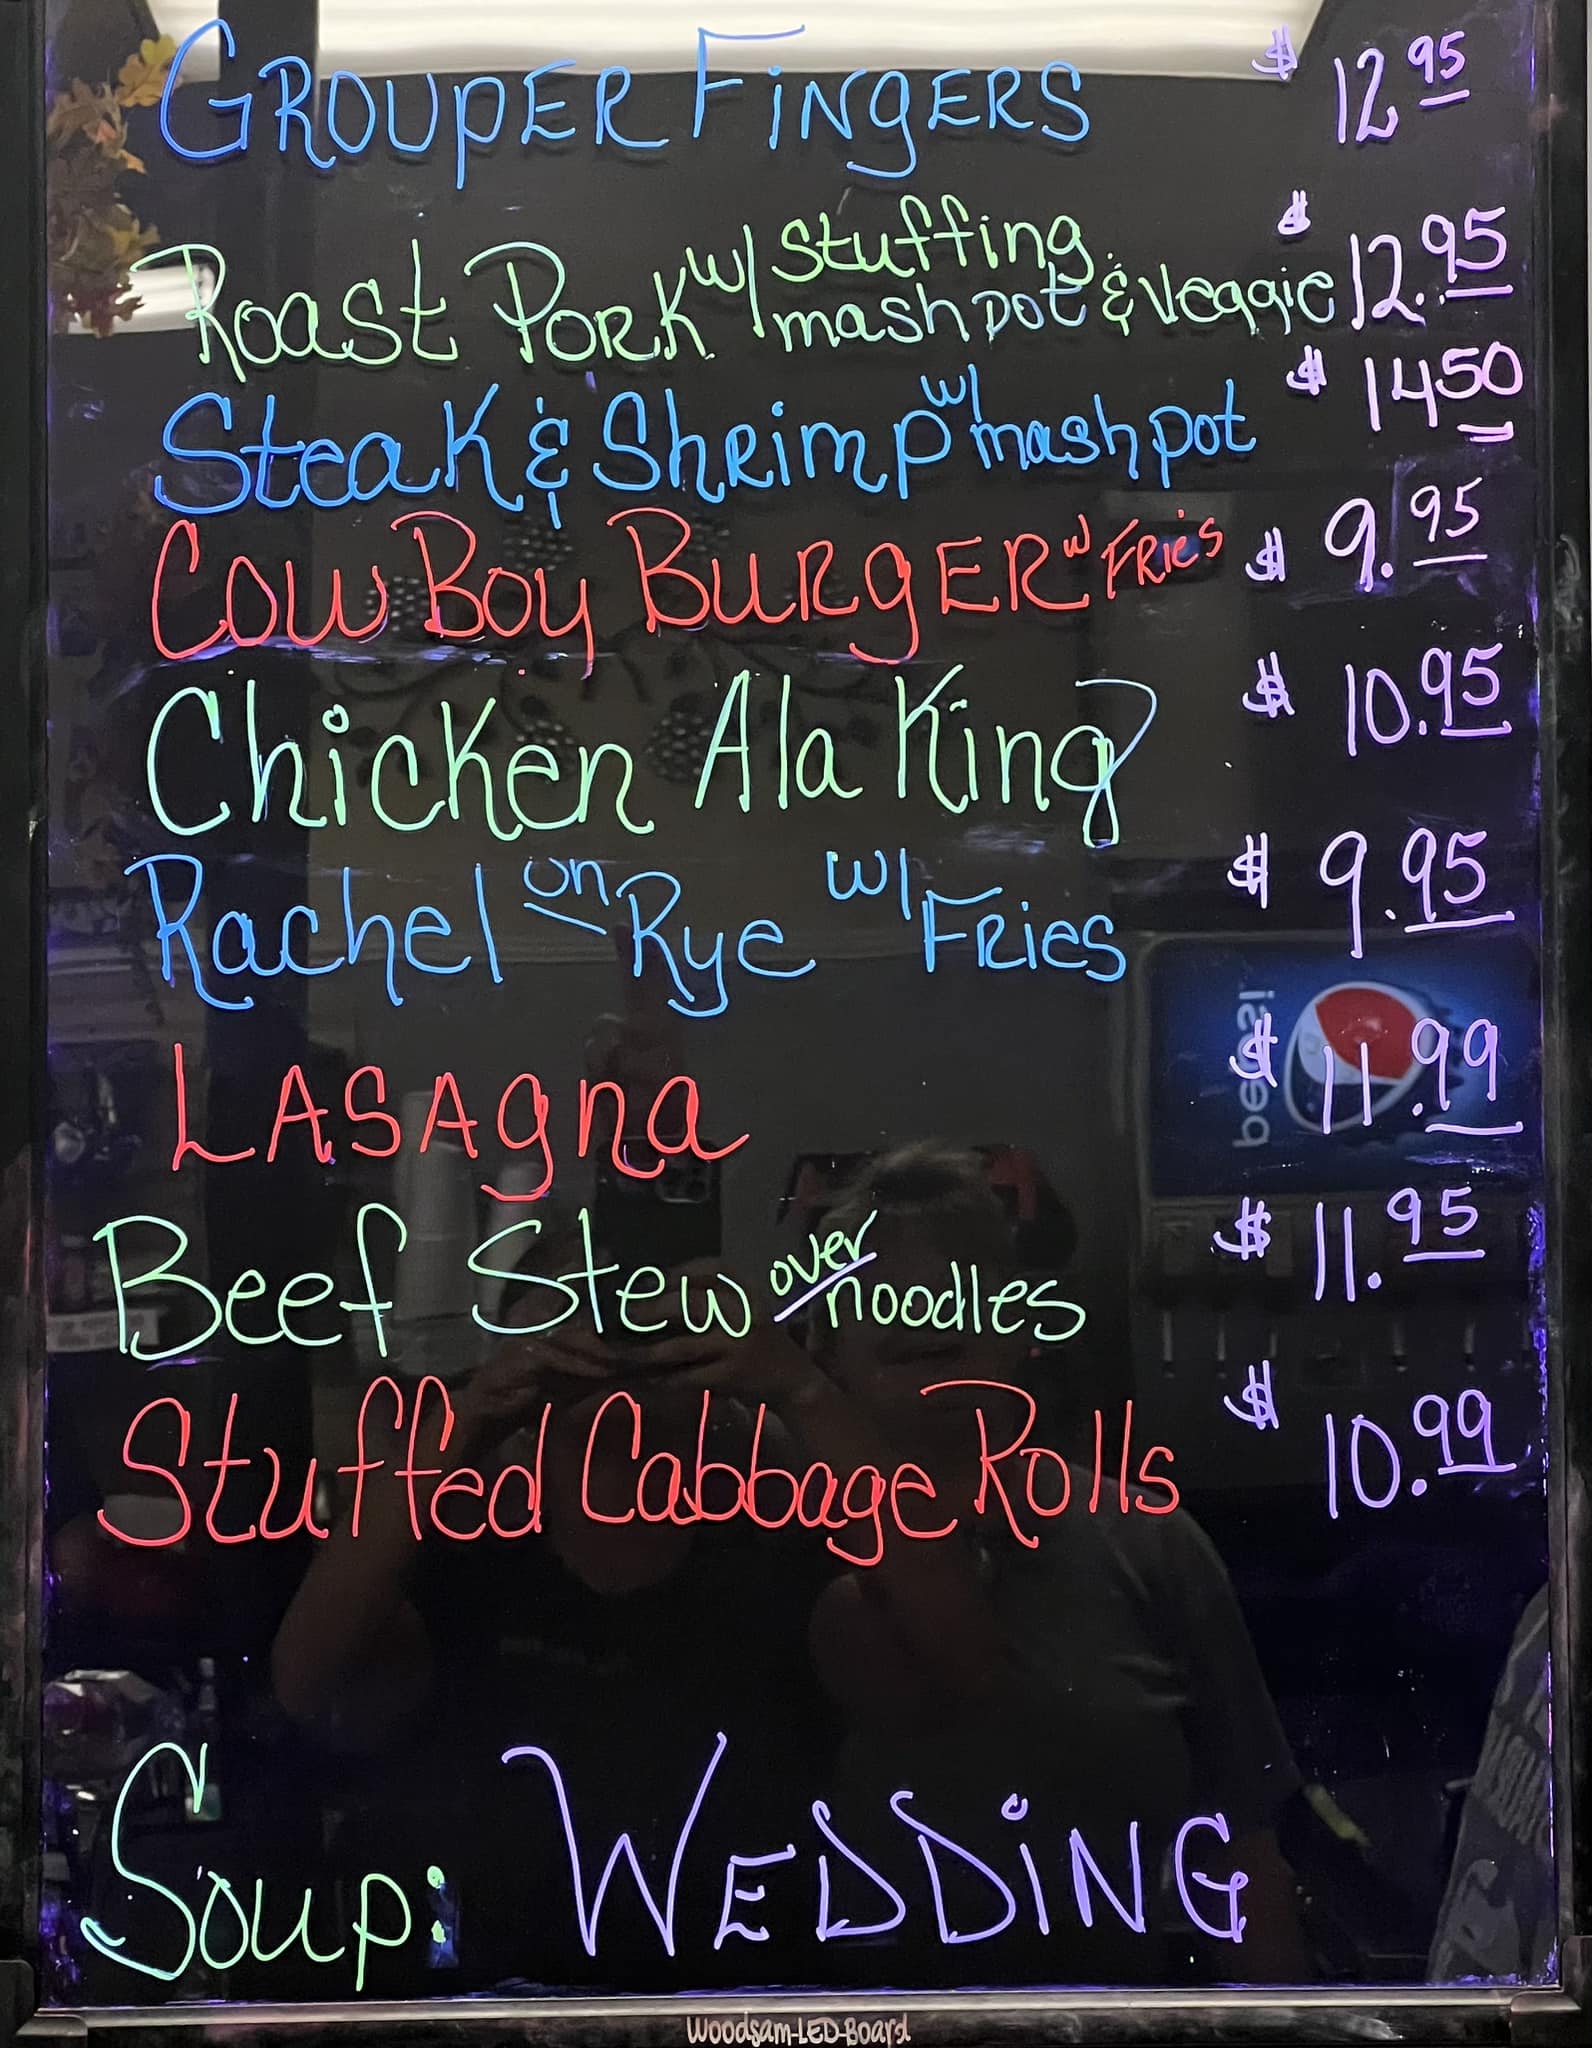 GROUPER FiNgERS $ 12 95
Roast PORK w/ Stuffing mash pot & Veggie $ 12.95
Steak & Shrimp w/ mash pot $ 14 50
COWBOy BURgER w FRies $ 9.95
Chicken Ala King $ 10.95
Rachel on Rye w/ FRies $ 9.95
LASAgna $ 11.99
pepsi
Beef Stew over noodles $ 11.95
Stuffed Cabbage Rolls $ 10.99
Soup: WEDDiNG
Woodsam-LED-Board